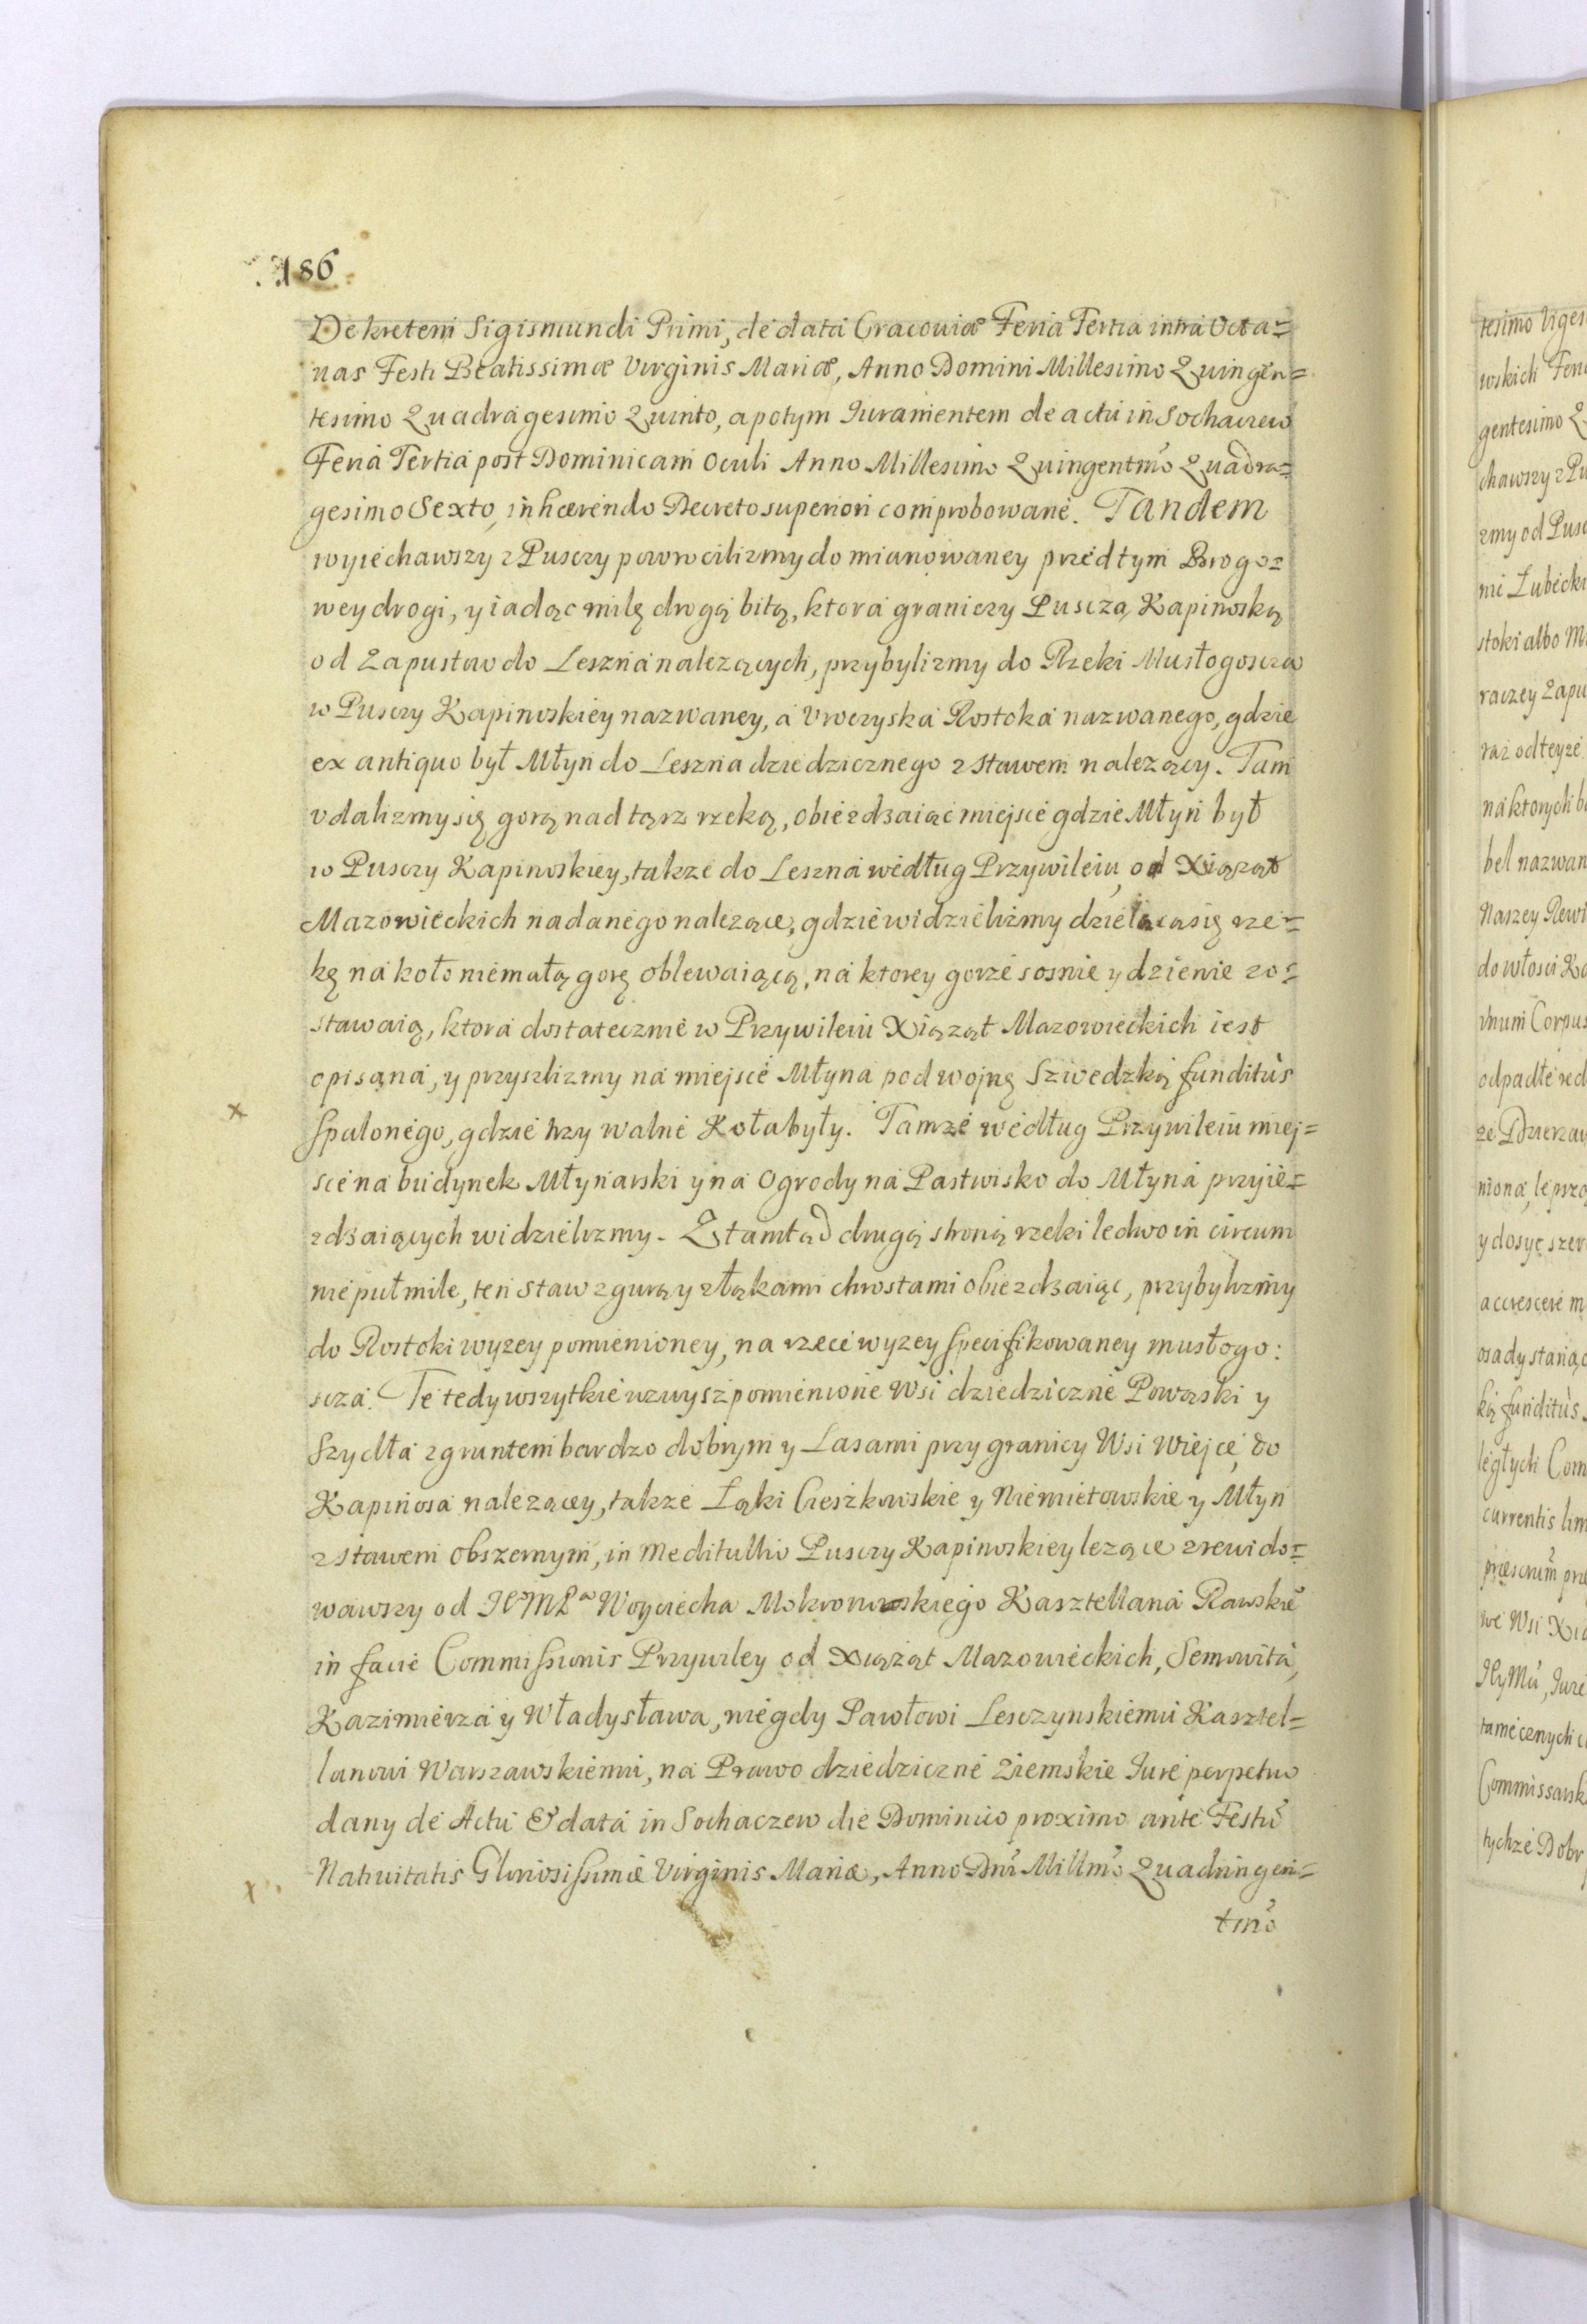 186
Dekretem Sigismundi Primi, de data Cracoviæ Feria Tertia intra Octa=
uas Festi Beatissimæ Virginis Mariæ, Anno Domini Millesimo Quingen=
tesimo Quadragesimo Quinto, a potym Iuramentem de actu in Sochaczew
Feria Tertia post Dominicam Oculi Anno Millesimo Quingentmo Quadra=
gesimo Sexto, inhærendo Decreto superiori comprobowane. Tandem
wyiechawszy z Pusczy powrocilizmy do mianowaney przedtym Brogo=
wey drogi, y iadąc milę drogą bitą, ktora graniczy Pusczą Kapinoską
od Zapustow do Leszna nalezących, przybylizmy do Rzeki Mustogoscza
w Pusczy Kapinoskiey nazwaney, a Vroczyska Rostoka nazwanego, gdzie
ex antiquo był Młyn do Leszna dziedzicznego z stawem nalezący. Tam
vdalizmy się gorą nad tąrz rzeką, obiezdzaiąc miejsce gdzie Młyn był
w Pusczy Kapinoskiey, takze do Leszna według Przywileiu, od Xiąząt
Mazowieckich nadanego nalezące, gdzie widzielizmy dzielącasię rze=
kę na koło niemałą gorę oblewaiącą, na ktorey gorze sosnie y dzienie zo=
stawaią, ktora dostatecznie w Przywileiu Xiąząt Mazowieckich iest
opisana, y przyszlizmy na miejsce Młyna pod wojnę Szwedzką funditus
spalonego, gdzie trzy walne Koła były. Tamze według Przywileiu miej=
sce na budynek Młynarski y na Ogrody na Pastwisko do Młyna przyie=
zdzaiących widzielizmy. Ztamtąd drugą stroną rzeki ledwo in circum
nie puł mile, ten staw z gurą y z łąkami chrostami obiezdzaiąc, przybylizmy
do Rostoki wyzey pomienioney, na rzece wyzey specifikowaney mustogo:
scza. Te tedy wszytkie wzwysz pomienione Wsi dziedziczne Powąski y
Szydła z gruntem bardzo dobrym y Lasami przy granicy Wsi Wiejce, do
Kapinosa nalezącey, takze Łąki Cieszkowskie y Niemietowskie y Młyn
z stawem obszernym, in meditullio Pusczy Kapinoskiey lezące zrewido=
wawszy od Woyciecha Mokronowskiego Kasztellana Rawskie
in facie Commissionis Przywiley od Xiąząt Mazowieckich, Semowita,
Kazimierza y Władysława, niegdy Pawłowi Lesczynskiemu Kasztel=
lanowi Warszawskiemu, na Prawo dziedziczne Ziemskie Iure perpetuo
dany de Actu & data in Sochaczew die Dominico proximo ante Festu
Natiuitatis Gloriosissimæ Virginis Mariæ, Anno Dni Millmo Quadringen=
tmo